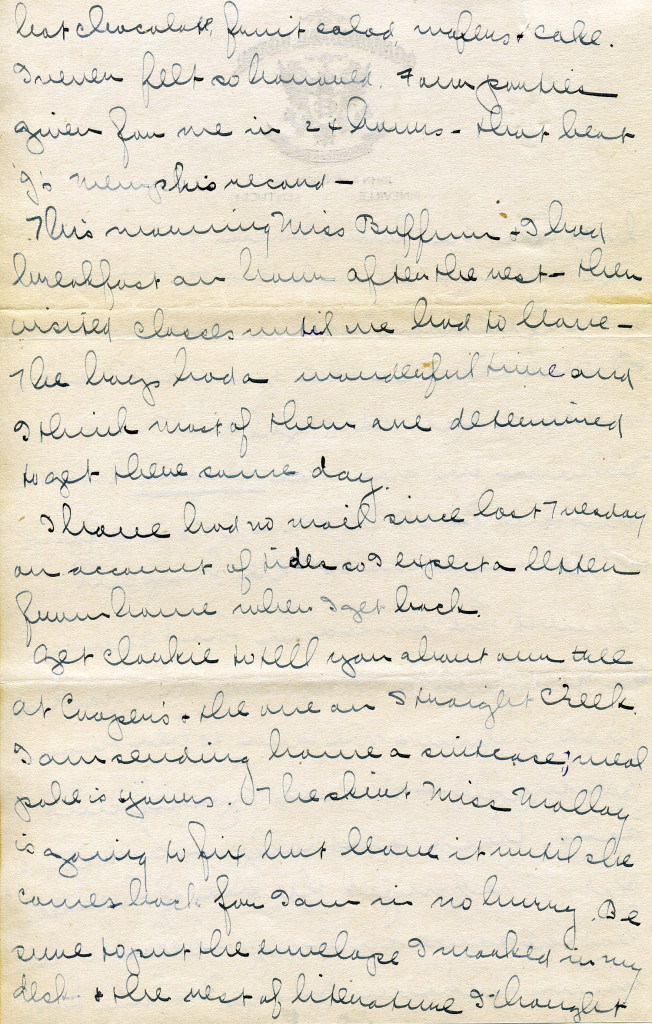 hot chocolate, fruit salad wafers + cake.
I never felt so honored. Four parties
given for me in 24 hours - that beat
J's Memphis record -
This morning Miss Buffum + I had
breakfast an hour after the rest - then
visited classes until we had to leave -
The boys had a wonderful time and
I think most of them are determined
to get there some day.
I have had no mail since last Tuesday
on account of tides so I expect a letter
from home when I get back.
Get Clarkie to tell you about our
at Cooper's + the one on Straight Creek.
I am sending home a suitcase; meal
poke is yours. The skirt Miss Molloy
is going to fix but leave it until she
comes back for I am in no hurry. Be
sure to put the envelope I marked in my
desk + the rest of literature I thought